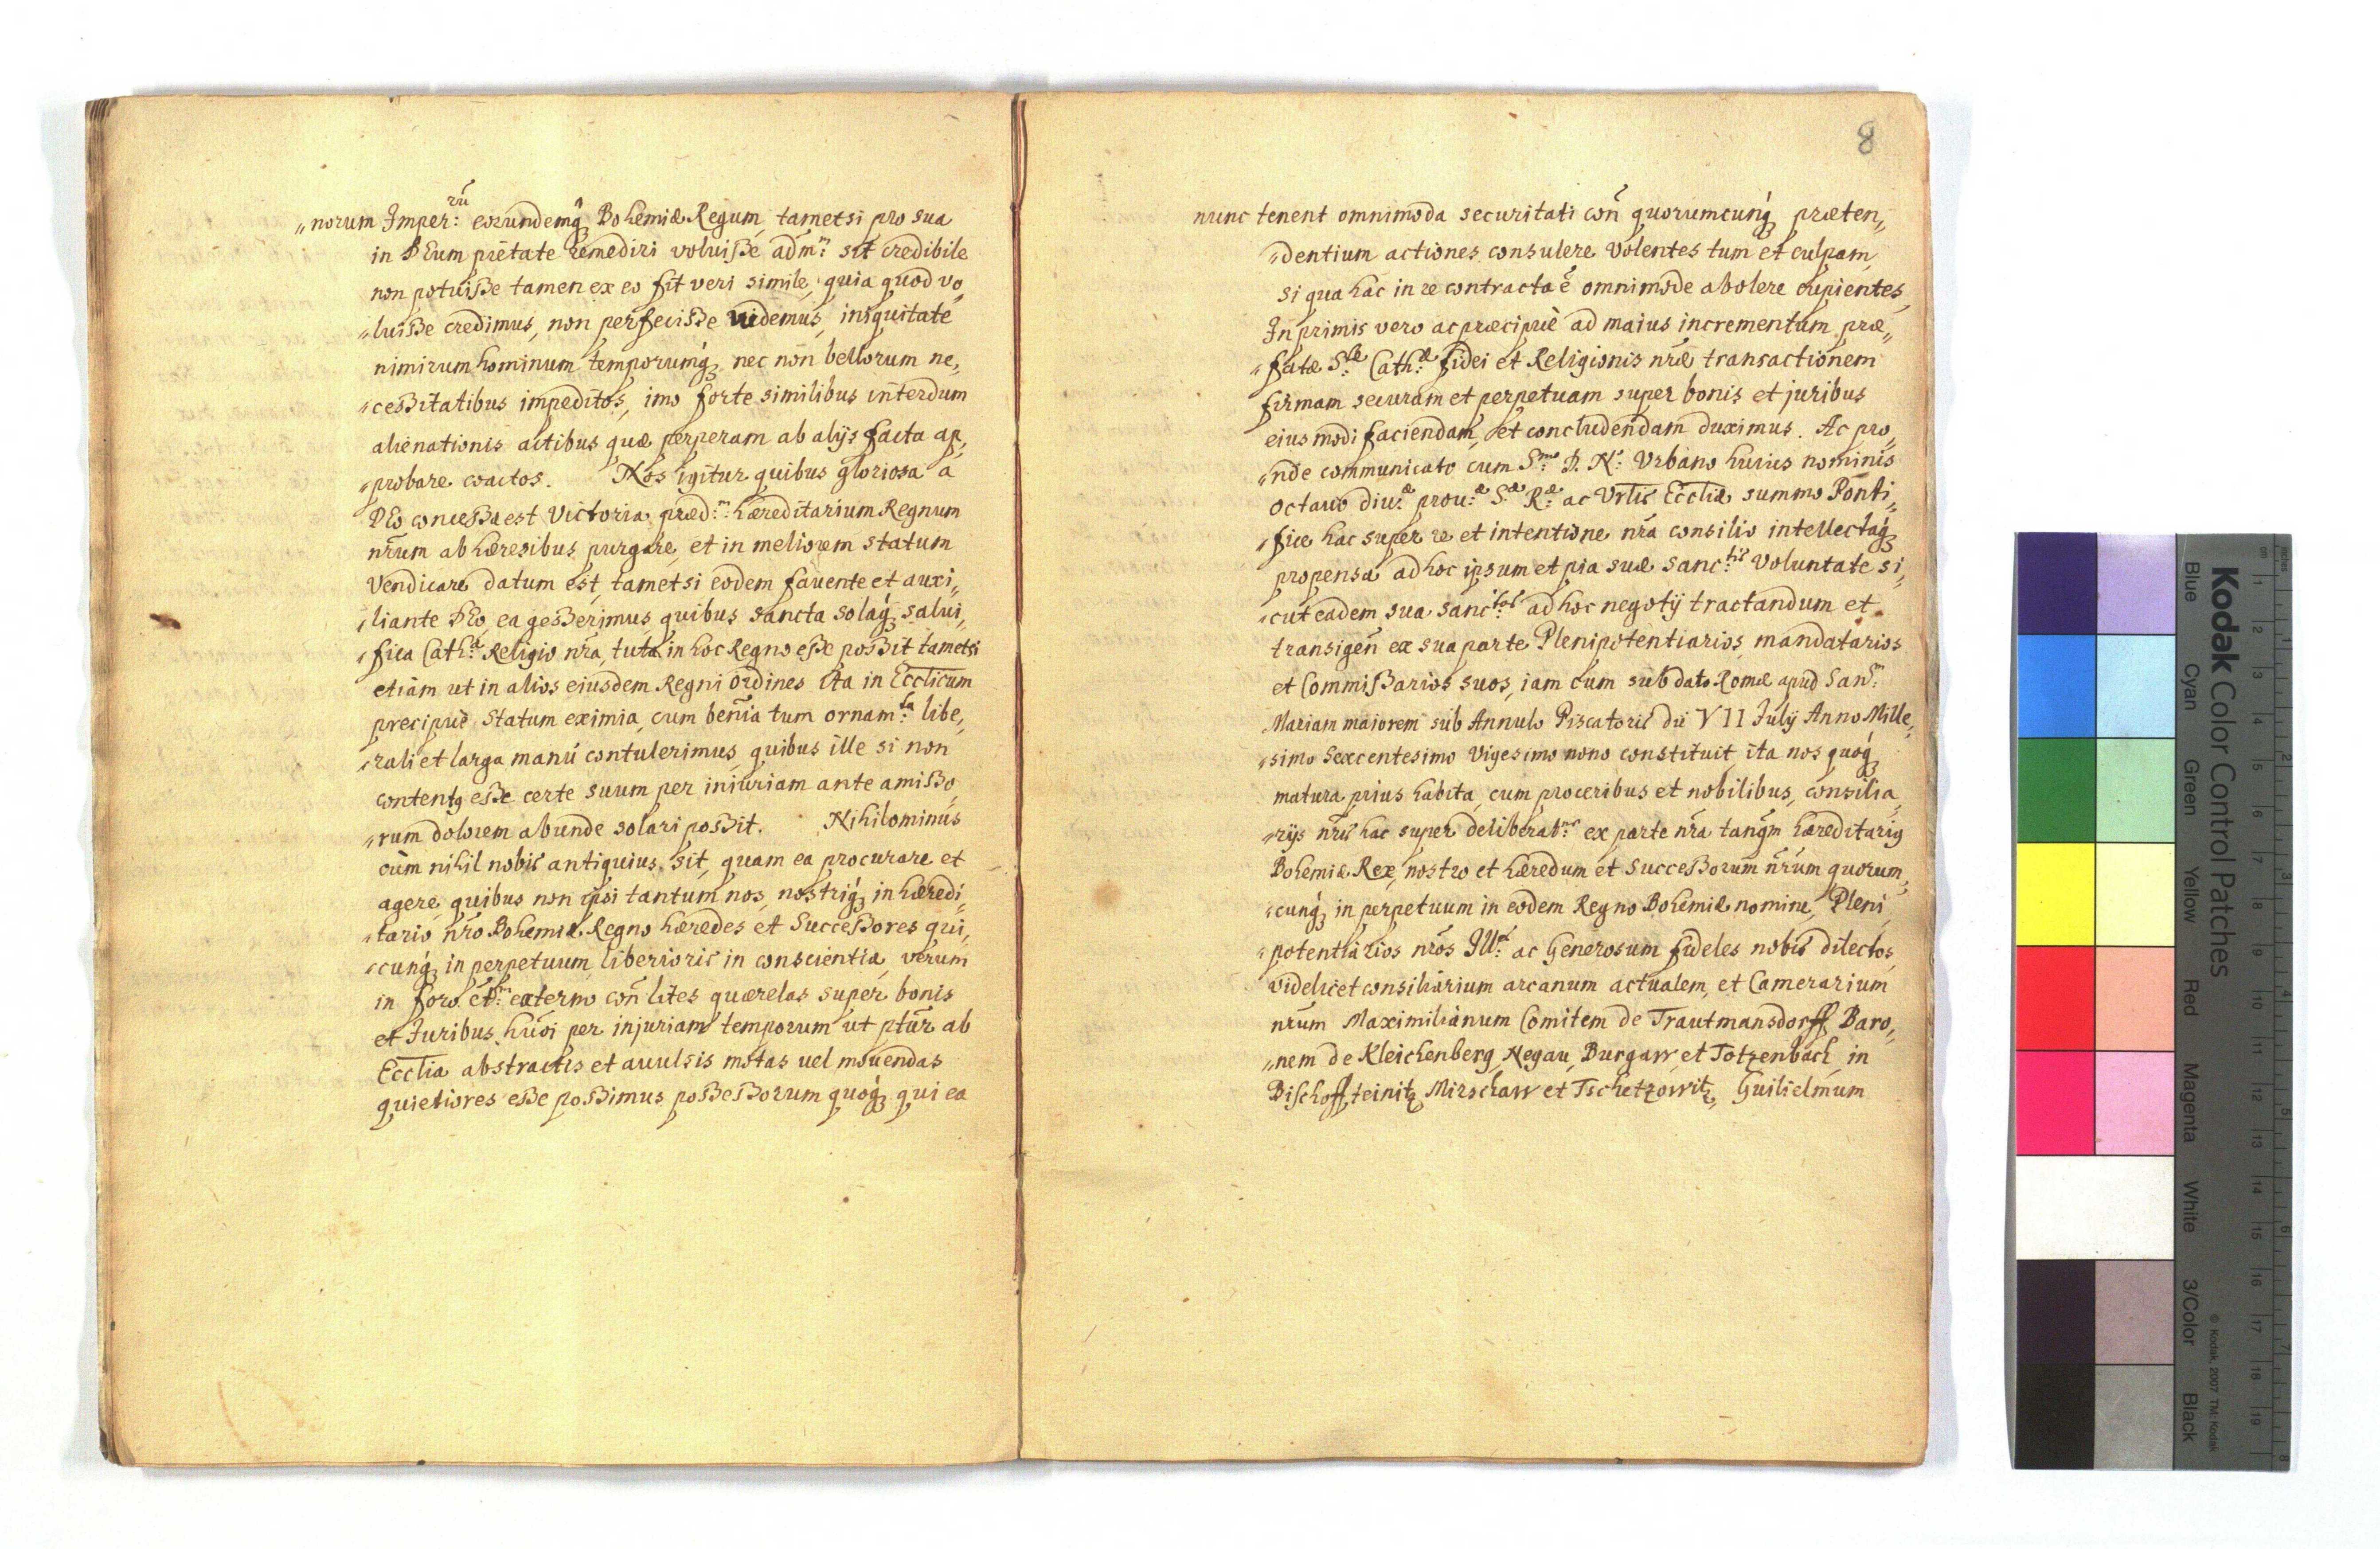 „norum Imper:rũ eorundemq̃ Bohemiæ Regum, tametsi pro sua
in DEum pietate remediri voluiſse adm:m sit credibile
non potuiſse tamen ex eo fit veri simile, quia quod vo„
„luiſse credimus, non perfeciſse videmus, iniquitate
nimirum hominum temporumq́, nec non bellorum ne„
„ceſsitatibus impeditos, imo forte similibus interdum
alienationis actibus quæ perperam ab alijs facta ap„
„probare coactos. Nos igitur quibus gloriosa a
DEo conceſsa est Victoria, præd:m hæreditarium Regnum
nr̃um ab hæresibus purgare, et in meliorem statum
Vendicare datum est, tametsi eodem fauente et auxi„
„liante DEo, ea geſserimus, quibus sancta solaq́ salui„
„fica Cath:a Religio nr̃a, tuta in hoc Regno eſse poſsit tametsi
etiam ut in alios eiusdem Regni Ordines ita in Ecclicum
precipuè Statum eximia, cum benĩa tum ornam:ta libe„
„rali et larga manú contulerimus, quibus ille si non
contentꝰ eſse certe suum per iniuriam ante amiſso„
„rum dolorem abunde solari poſsit. Nihilominus
cùm nihil nobis antiquius sit, quam ea procurare et
agere, quibus non ipsi tantum nos, nostriq́ in hæredi„
„tario nr̃o Bohemiæ Regno hæredes et Succeſsores qui„
„cunq́ in perpetuum, liberioris in conscientia, verum
in foro et:m externo con̄ lites quærelas super bonis
et Juribus hũoi per injuriam temporum ut ptũr ab
Ecclia abstractis et auulsis motas uel mouendas
quietiores eſse poſsimus poſseſsorum quoq́ qui ea
8
nunc tenent omnimoda securitati con̄ quorumcunq́ præten„
„dentium actiones consulere Volentes tum et culpam,
si qua hac in re contracta ẽ omnimode abolere cupientes,
In primis vero ac præcipuè ad maius incrementum præ„
„fatæ S:tæ Cath:æ fidei et Religionis nr̃æ transactionem
firmam securam et perpetuam super bonis et juribus
eiusmodi faciendam, et concludendam duximus. Ac pro„
„nde communicato cum S:mo D. N:o Vrbano huius nominis
octauo diu:æ prou:æ S:æ R:æ ac Vrlis Eccliæ summo Ponti„
„fice hac super re et intentione nr̃a consilio intellectaq́
propensa ad hoc ipsum et pia suæ Sanc:tis Voluntate si„
„cut eadem sua sanc:tas ad hoc negotij tractandum et
transigen̄ ex sua parte Plenipotentiarios, mandatarios
et Commiſsarios suos, iam cum sub dato Romæ apud San:m
Mariam maiorem sub Annulo Piscatoris die VII Julij Anno Mille„
„simo Sexcentesimo Vigesimo nono constituit, ita nos quoq́
matura prius habita, cum proceribus et nobilibus, consilia„
„rijs nr̃is hac super deliberat:ne ex parte nr̃a tanq̃m hæreditariꝰ
Bohemiæ Rex, nostro et hæredum et Succeſsorum nr̃um quorum„
„cunq́ in perpetuum in eodem Regno Bohemiæ nomine, Pleni„
„potentiarios nr̃os Ill: ac Generosum fideles nobis dilectos,
videlicet consiliarium arcanum actualem, et Camerarium
nr̃um Maximilianum Comitem de Trautmansdorff, Baro„
„nem de Kleichenberg, Negau, Burgaw, et Totzenbach, in
Biſchoffteinitz, Mirschaw et Tschetzowitz, Guilielmum
Kodak Color Control Patches
© Kodak, 2007 TM: Kodak
Blue Cyan Green Yellow Red Magenta White 3/Color Black
cm 1 2 3 4 5 6 7 8 9 10 11 12 13 14 15 16 17 18 19
inches 1 2 3 4 5 6 7 8